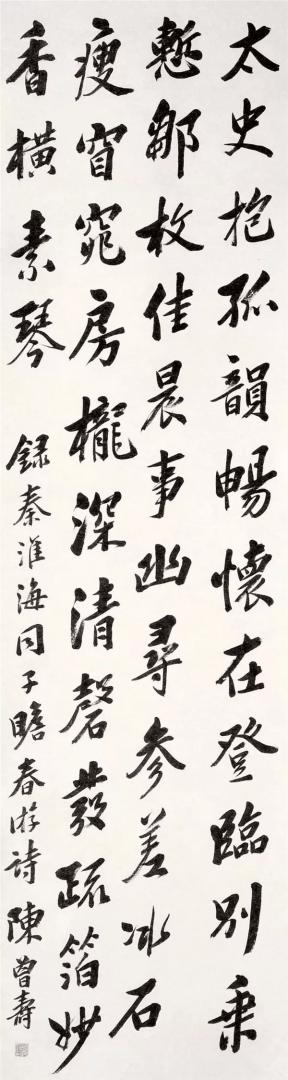 太史抱孤韻暢懷在登臨別乗
慙鄒枚佳晨事幽尋參差水石
瘦窅窕房櫳深清磬發疏箔妙
香橫素琴
錄秦淮海同子瞻春游詩 陳曾壽